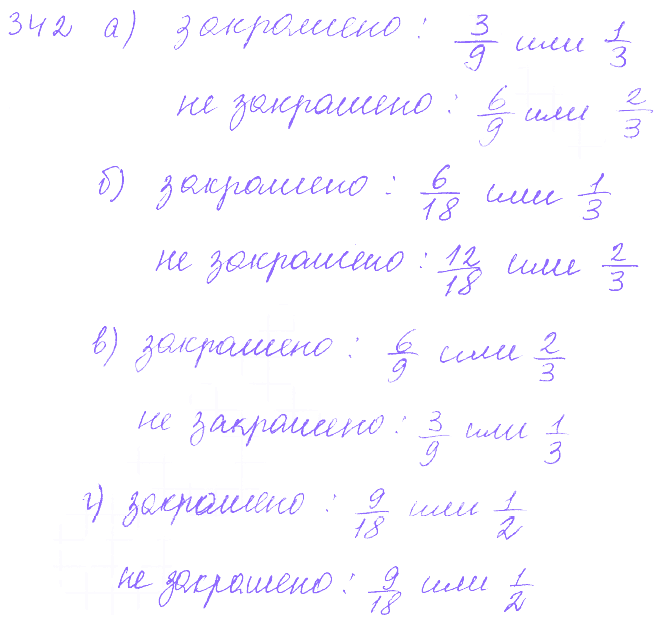 342 а) закрашено: 3/9 или 1/3
не закрашено: 6/9 или 2/3
б) закрашено: 6/18 или 1/3
не закрашено: 12/18 или 2/3
в) закрашено: 6/9 или 2/3
не закрашено: 3/9 или 1/3
г) закрашено: 9/18 или 1/2
не закрашено: 9/18 или 1/2